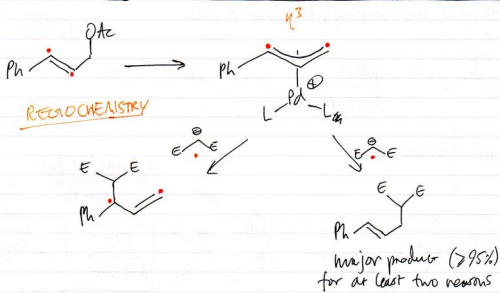 η³
OAc
Ph
Ph
REGIOCHEMISTRY
Pd ⊕
L L
⊖
E E
⊖
E E
E E
Ph
E E
Ph
major product (≥95%)
for at least two reasons